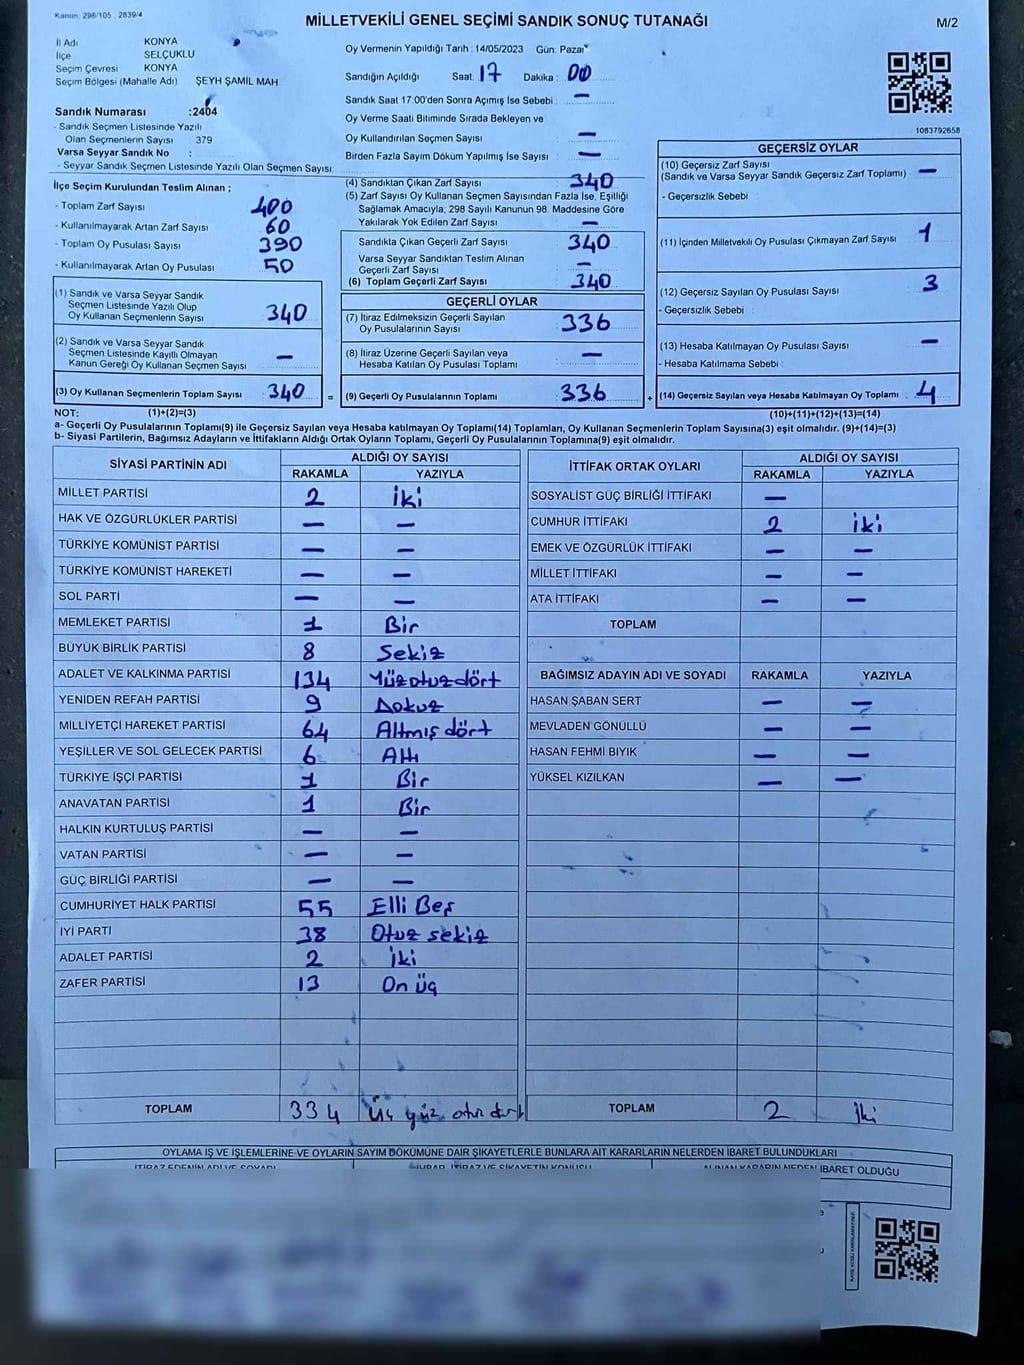 Kanun: 298/105 , 2839/4
MİLLETVEKİLİ GENEL SEÇİMİ SANDIK SONUÇ TUTANAĞI
M/2
İl Adı KONYA
İlçe SELÇUKLU
Seçim Çevresi KONYA
Seçim Bölgesi (Mahalle Adı) ŞEYH ŞAMİL MAH
Sandık Numarası :2404
- Sandık Seçmen Listesinde Yazılı
Olan Seçmenlerin Sayısı : 379
Varsa Seyyar Sandık No :
- Seyyar Sandık Seçmen Listesinde Yazılı Olan Seçmen Sayısı:
İlçe Seçim Kurulundan Teslim Alınan ;
- Toplam Zarf Sayısı 400
- Kullanılmayarak Artan Zarf Sayısı 60
- Toplam Oy Pusulası Sayısı 390
- Kullanılmayarak Artan Oy Pusulası 50
(1) Sandık ve Varsa Seyyar Sandık
Seçmen Listesinde Yazılı Olup
Oy Kullanan Seçmenlerin Sayısı 340
(2) Sandık ve Varsa Seyyar Sandık
Seçmen Listesinde Kayıtlı Olmayan
Kanun Gereği Oy Kullanan Seçmen Sayısı —
(3) Oy Kullanan Seçmenlerin Toplam Sayısı 340 =
Oy Vermenin Yapıldığı Tarih : 14/05/2023 Gün: Pazar
Sandığın Açıldığı Saat: 17 Dakika : 00
Sandık Saat 17:00'den Sonra Açımış İse Sebebi : —
Oy Verme Saati Bitiminde Sırada Bekleyen ve
Oy Kullandırılan Seçmen Sayısı —
Birden Fazla Sayım Döküm Yapılmış İse Sayısı —
(4) Sandıktan Çıkan Zarf Sayısı 340
(5) Zarf Sayısı Oy Kullanan Seçmen Sayısından Fazla İse, Eşitliği
Sağlamak Amacıyla; 298 Sayılı Kanunun 98. Maddesine Göre
Yakılarak Yok Edilen Zarf Sayısı —
Sandıkta Çıkan Geçerli Zarf Sayısı 340
Varsa Seyyar Sandıktan Teslim Alınan
Geçerli Zarf Sayısı —
(6) Toplam Geçerli Zarf Sayısı 340
GEÇERLİ OYLAR
(7) İtiraz Edilmeksizin Geçerli Sayılan
Oy Pusulalarının Sayısı 336
(8) İtiraz Üzerine Geçerli Sayılan veya
Hesaba Katılan Oy Pusulası Toplamı —
(9) Geçerli Oy Pusulalarının Toplamı 336 +
1083792658
GEÇERSİZ OYLAR
(10) Geçersiz Zarf Sayısı
(Sandık ve Varsa Seyyar Sandık Geçersiz Zarf Toplamı) —
- Geçersizlik Sebebi
(11) İçinden Milletvekili Oy Pusulası Çıkmayan Zarf Sayısı 1
(12) Geçersiz Sayılan Oy Pusulası Sayısı 3
- Geçersizlik Sebebi :
(13) Hesaba Katılmayan Oy Pusulası Sayısı —
- Hesaba Katılmama Sebebi :
(14) Geçersiz Sayılan veya Hesaba Katılmayan Oy Toplamı : 4
NOT: (1)+(2)=(3) (10)+(11)+(12)+(13)=(14)
a- Geçerli Oy Pusulalarının Toplamı(9) ile Geçersiz Sayılan veya Hesaba katılmayan Oy Toplamı(14) Toplamları, Oy Kullanan Seçmenlerin Toplam Sayısına(3) eşit olmalıdır. (9)+(14)=(3)
b- Siyasi Partilerin, Bağımsız Adayların ve İttifakların Aldığı Ortak Oyların Toplamı, Geçerli Oy Pusulalarının Toplamına(9) eşit olmalıdır.
SİYASİ PARTİNİN ADI ALDIĞI OY SAYISI
RAKAMLA YAZIYLA
MİLLET PARTİSİ 2 iki
HAK VE ÖZGÜRLÜKLER PARTİSİ — —
TÜRKİYE KOMÜNİST PARTİSİ — —
TÜRKİYE KOMÜNİST HAREKETİ — —
SOL PARTİ — —
MEMLEKET PARTİSİ 1 Bir
BÜYÜK BİRLİK PARTİSİ 8 Sekiz
ADALET VE KALKINMA PARTİSİ 134 Yüzotuzdört
YENİDEN REFAH PARTİSİ 9 Dokuz
MİLLİYETÇİ HAREKET PARTİSİ 64 Altmış dört
YEŞİLLER VE SOL GELECEK PARTİSİ 6 Altı
TÜRKİYE İŞÇİ PARTİSİ 1 Bir
ANAVATAN PARTİSİ 1 Bir
HALKIN KURTULUŞ PARTİSİ — —
VATAN PARTİSİ — —
GÜÇ BİRLİĞİ PARTİSİ — —
CUMHURİYET HALK PARTİSİ 55 Elli Beş
İYİ PARTİ 38 Otuz sekiz
ADALET PARTİSİ 2 iki
ZAFER PARTİSİ 13 On üç
TOPLAM 334 Üç yüz otuz dört
İTTİFAK ORTAK OYLARI ALDIĞI OY SAYISI
RAKAMLA YAZIYLA
SOSYALİST GÜÇ BİRLİĞİ İTTİFAKI —
CUMHUR İTTİFAKI 2 iki
EMEK VE ÖZGÜRLÜK İTTİFAKI — —
MİLLET İTTİFAKI — —
ATA İTTİFAKI — —
TOPLAM
BAĞIMSIZ ADAYIN ADI VE SOYADI RAKAMLA YAZIYLA
HASAN ŞABAN SERT — —
MEVLADEN GÖNÜLLÜ — —
HASAN FEHMİ BIYIK — —
YÜKSEL KIZILKAN — —
TOPLAM 2 iki
OYLAMA İŞ VE İŞLEMLERİNE VE OYLARIN SAYIM DÖKÜMÜNE DAİR ŞİKAYETLERLE BUNLARA AİT KARARLARIN NELERDEN İBARET BULUNDUKLARI
İTİRAZ EDENİN ADI VE SOYADI İHBAR, İTİRAZ VE ŞİKAYETİN KONUSU ALINAN KARARIN NEDEN İBARET OLDUĞU